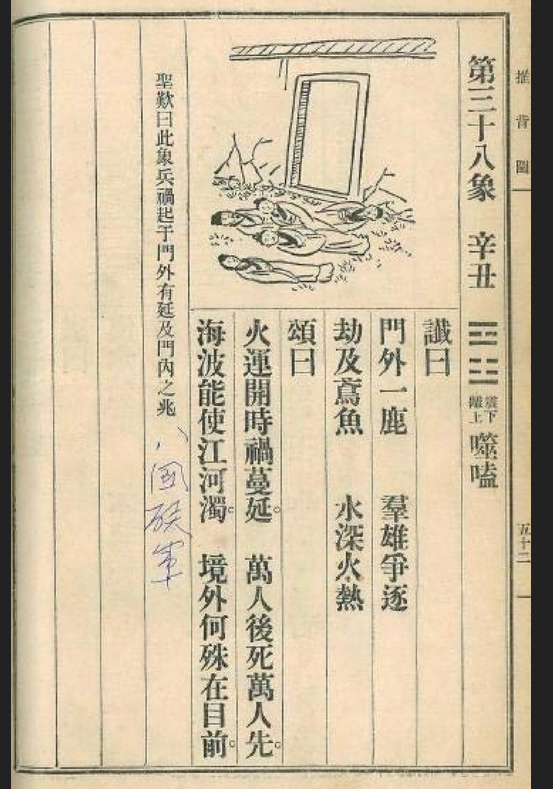 推背圖
五十二
第三十八象 辛丑 震下離上 噬嗑
讖曰
門外一鹿 羣雄爭逐
劫及鳶魚 水深火熱
頌曰
火運開時禍蔓延。 萬人後死萬人先。
海波能使江河濁。 境外何殊在目前。
聖歎曰此象兵禍起于門外有延及門內之兆
八國联軍